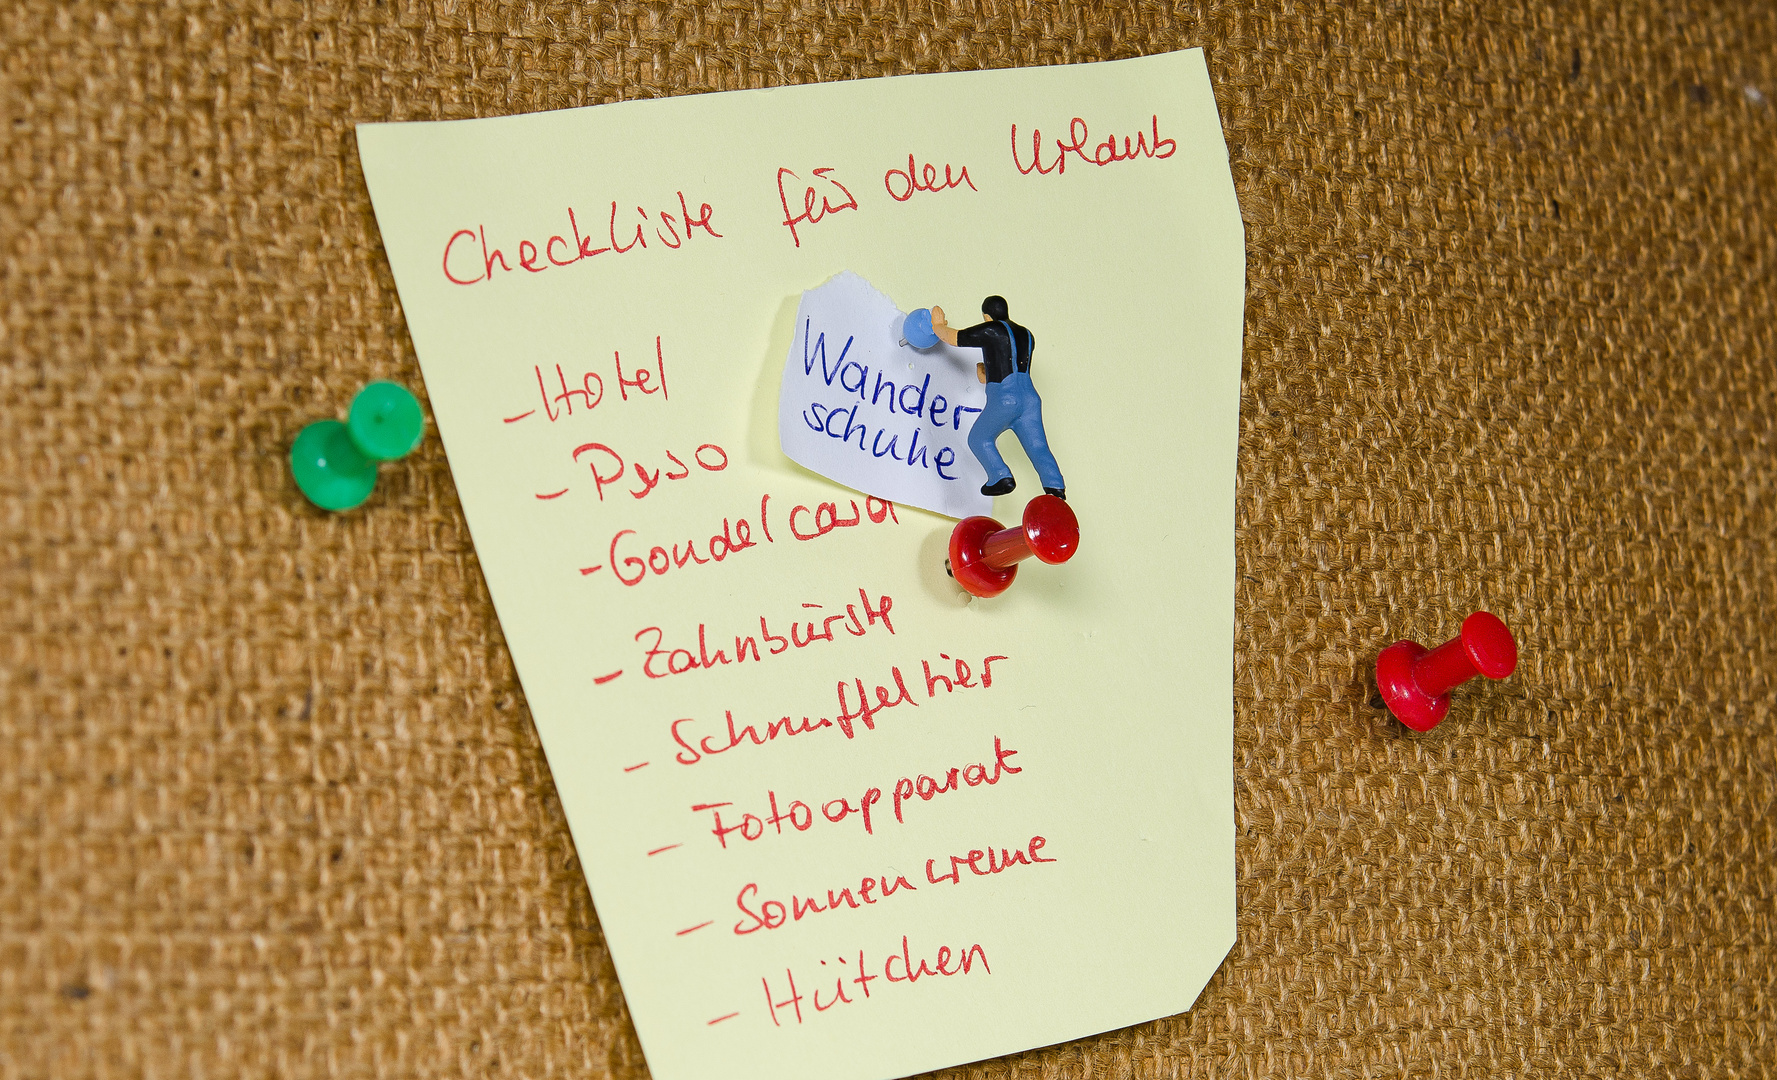 Checkliste für den Urlaub
Wander
schuhe
- Hotel
- Perso
- Gondelcard
- Zahnbürste
- Schnuffeltier
- Fotoapparat
- Sonnencreme
- Hütchen